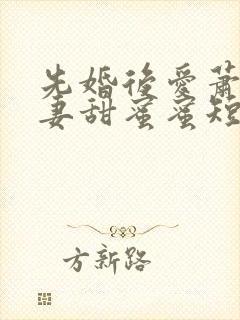 先婚後愛蕭
妻甜蜜蜜短
方新路